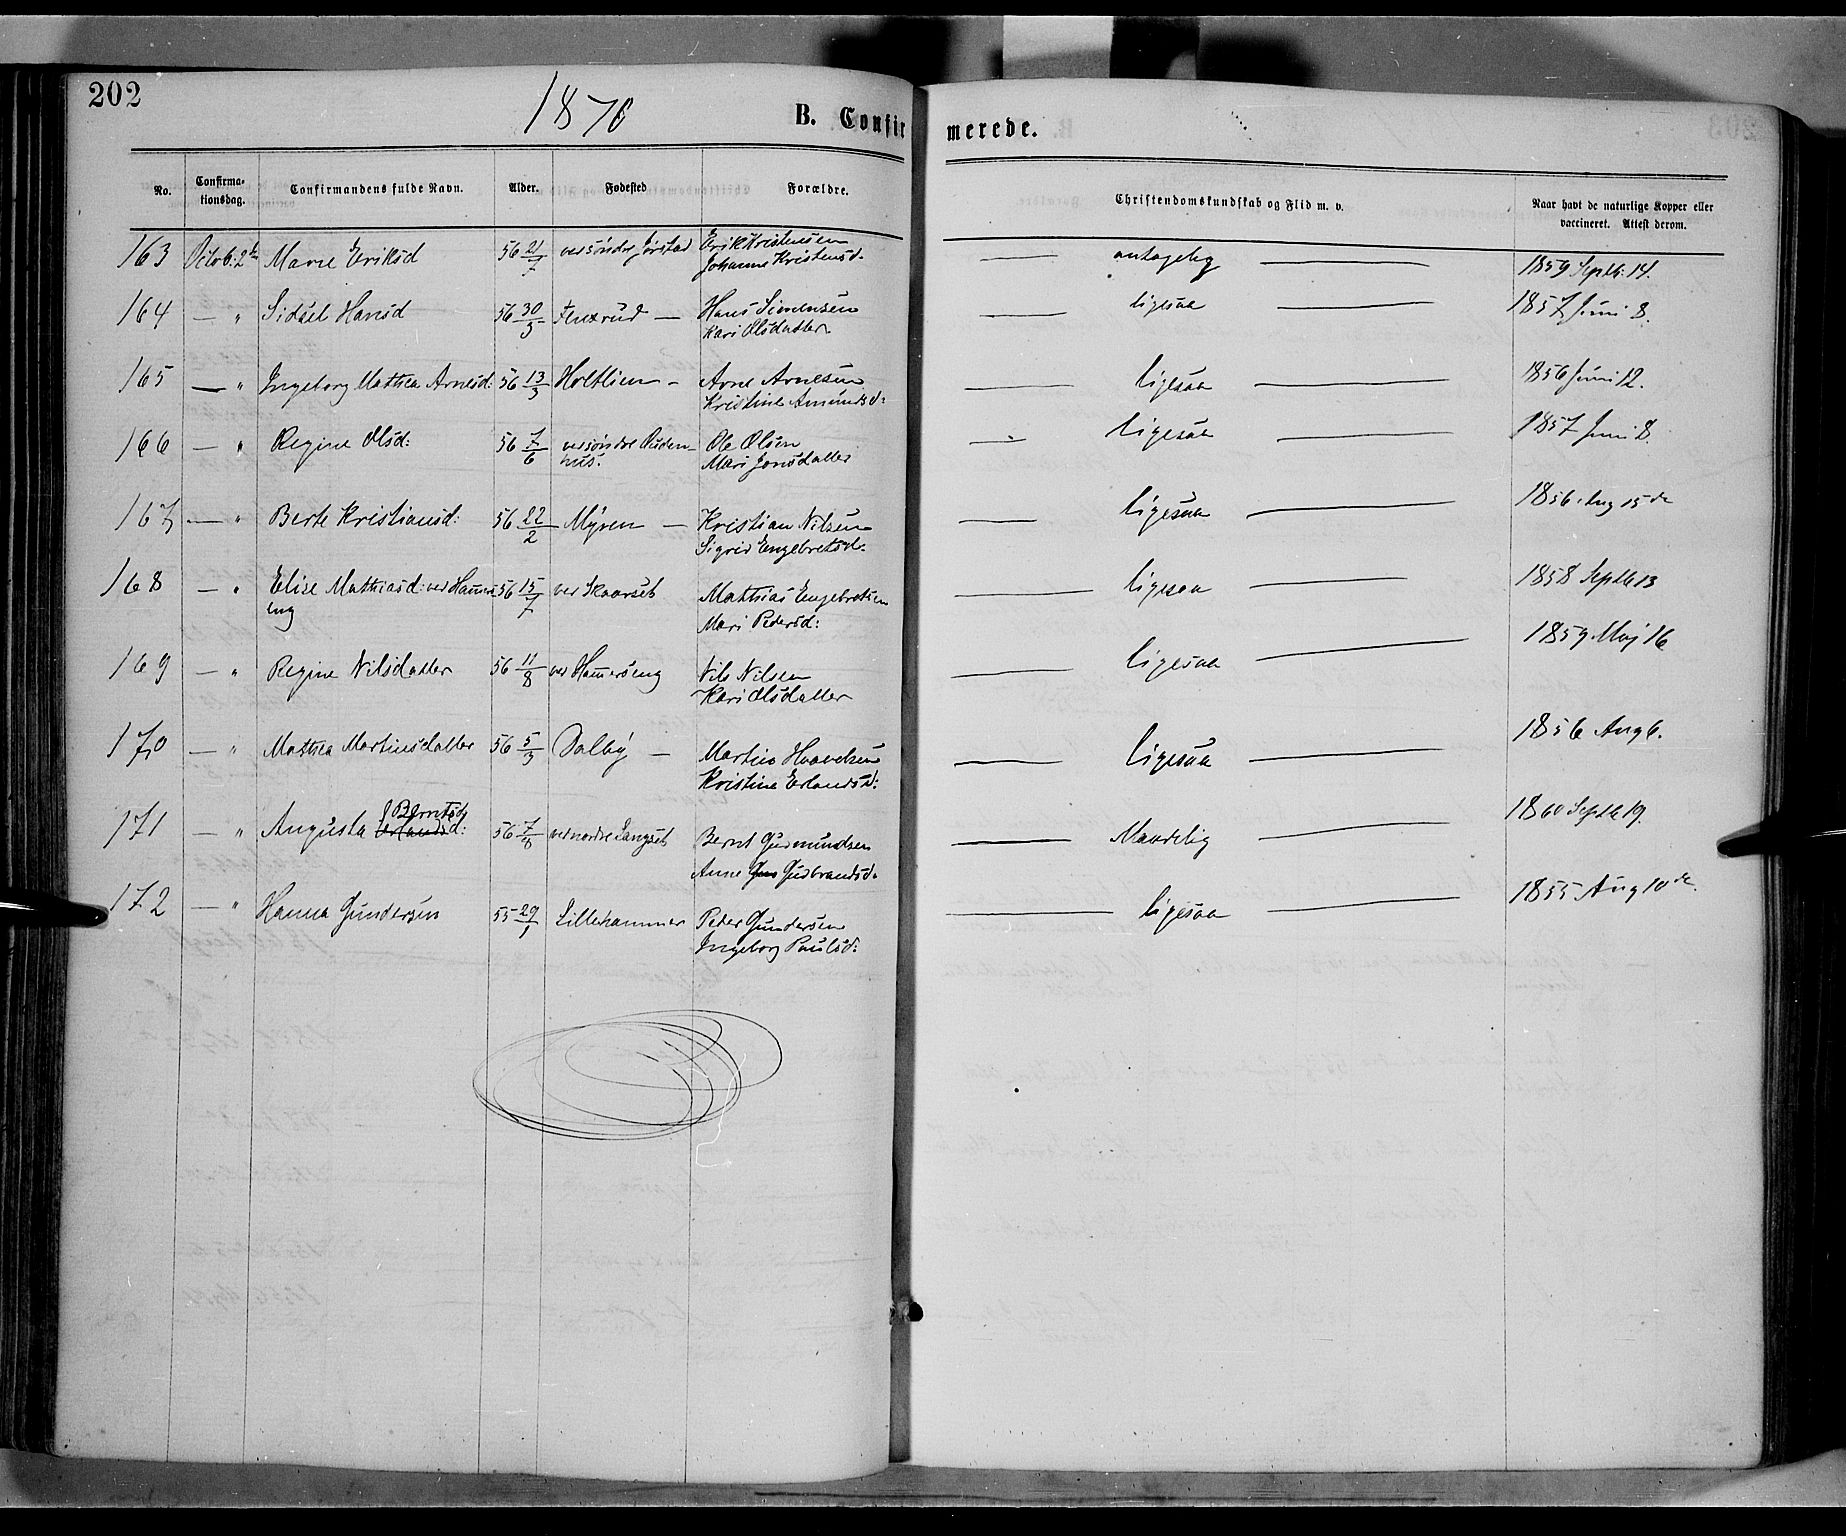 202
1870
B. Confirmerede.
No. Confirmationsdag. Confirmandens fulde Navn. Alder. Fødested Forældre. Christendomskundskab og Flid m. v. Naar havt de naturlige Kopper eller vaccineret. Attest derom.
163 Octob: 2den Marie Eriksd 56 21/7 ved søndre Jørstad Erik Kristensen — antagelig — 1859 Septb: 14.
Johanne Kristensd.
164 — " Sidsel Hansd 56 30/5 — Hans Simensen — ligesaa — 1857 Juni 8.
Kari Olsdatter
165 — " Ingeborg Mathea Arnesd: 56 13/3 Holtlien — Arne Arnesen — ligesaa — 1856 Juni 12.
Kristine Amundsd:
166 — " Regine Olsd: 56 7/6 ved søndre Rudenhus. Ole Olsen — ligesaa — 1857 Juni 8.
Mari Jonsdatter
167 — " Berte Kristiansd: 56 22/2 Myren — Kristian Nilsen — ligesaa — 1856 Aug 15de
Sigrid Engebretsd.
168 — " Elise Mathiasd: ved Hamers 56 15/7 ved Skaarset Mathias Engebretsen — ligesaa — 1858 Septb 13
eng Mari Pedersd:
169 — " Regine Nilsdatter 56 11/8 ved Hamerseng Nils Nilsen — ligesaa — 1859 Maj 16
Kari Olsdatter
170 — " Mathea Martinsdatter 56 5/3 Dalby — Martin Haavelsen — ligesaa — 1856 Aug 6.
Kristine Erlandsd:
171 — " Augusta Erlandsd: Berntsd 56 7/8 ved nordre Langset Bernt Gudmundsen — Maadelig — 1860 Septb 19.
Anne Gudbrandsd.
172 — " Hanna Gundersen 55 29/1 Lillehammer Peder Gundersen — ligesaa — 1855 Aug 10de
Ingeborg Paulsd: